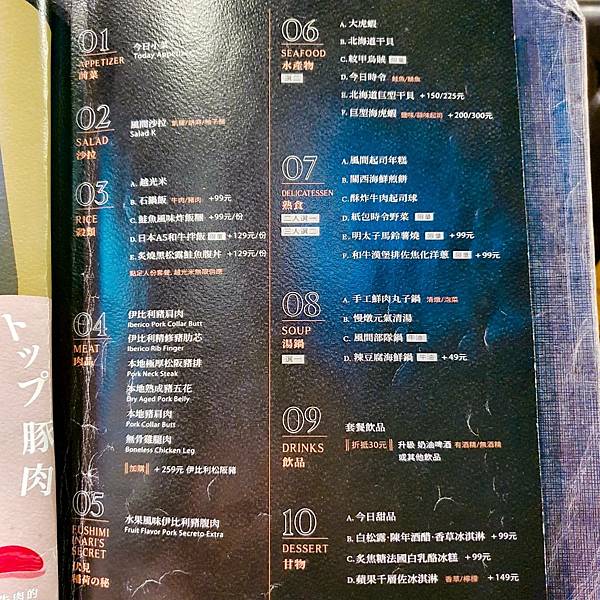 01
APPETIZER
前菜
今日小菜
Today Appetizer
02
SALAD
沙拉
風間沙拉 凱薩/胡麻/柚子醋
Salad K
03
RICE
穀類
A. 越光米
B. 石鍋飯 牛肉/豬肉 +99元
C. 鮭魚風味炸飯糰 +99元/份
D. 日本A5和牛拌飯 限量 +129元/份
E. 炙燒黑松露鮭魚腹丼 +129元/份
點定人份套餐, 越光米無限供應
04
MEAT
肉品
伊比利豬肩肉
Iberico Pork Collar Butt
伊比利精修豬肋芯
Iberico Rib Finger
本地極厚松阪豬排
Pork Neck Steak
本地熟成豬五花
Dry Aged Pork Belly
本地豬肩肉
Pork Collar Butt
無骨雞腿肉
Boneless Chicken Leg
加購 +259元 伊比利松阪豬
05
FUSHIMI
INARI'S
SECRET
伏見
稻荷の秘
水果風味伊比利豬腹肉
Fruit Flavor Pork Secreto-Extra
06
SEAFOOD
水產物
選二
A. 大虎蝦
B. 北海道干貝
C. 紋甲烏賊 限量
D. 今日時令 鮭魚/鯛魚
E. 北海道巨型干貝 +150/225元
F. 巨型海虎蝦 鹽味/蒜味起司 +200/300元
07
DELICATESSEN
熟食
二人選一
三人選二
A. 風間起司年糕
B. 關西海鮮煎餅
C. 酥炸牛肉起司球
D. 紙包時令野菜 限量
E. 明太子馬鈴薯燒 限量 +99元
F. 和牛漢堡排佐焦化洋蔥 限量 +99元
08
SOUP
湯鍋
選一
A. 手工鮮肉丸子鍋 清燉/泡菜
B. 慢燉元氣清湯
C. 風間部隊鍋 牛油
D. 辣豆腐海鮮鍋 牛油 +49元
09
DRINKS
飲品
套餐飲品
折抵30元 升級 奶油啤酒 有酒精/無酒精
或其他飲品
10
DESSERT
甘物
A. 今日甜品
B. 白松露·陳年酒醋·香草冰淇淋 +99元
C. 炙焦糖法國白乳酪冰糕 +99元
D. 蘋果千層佐冰淇淋 香草/檸檬 +149元
トップ 豚肉
牛肉的